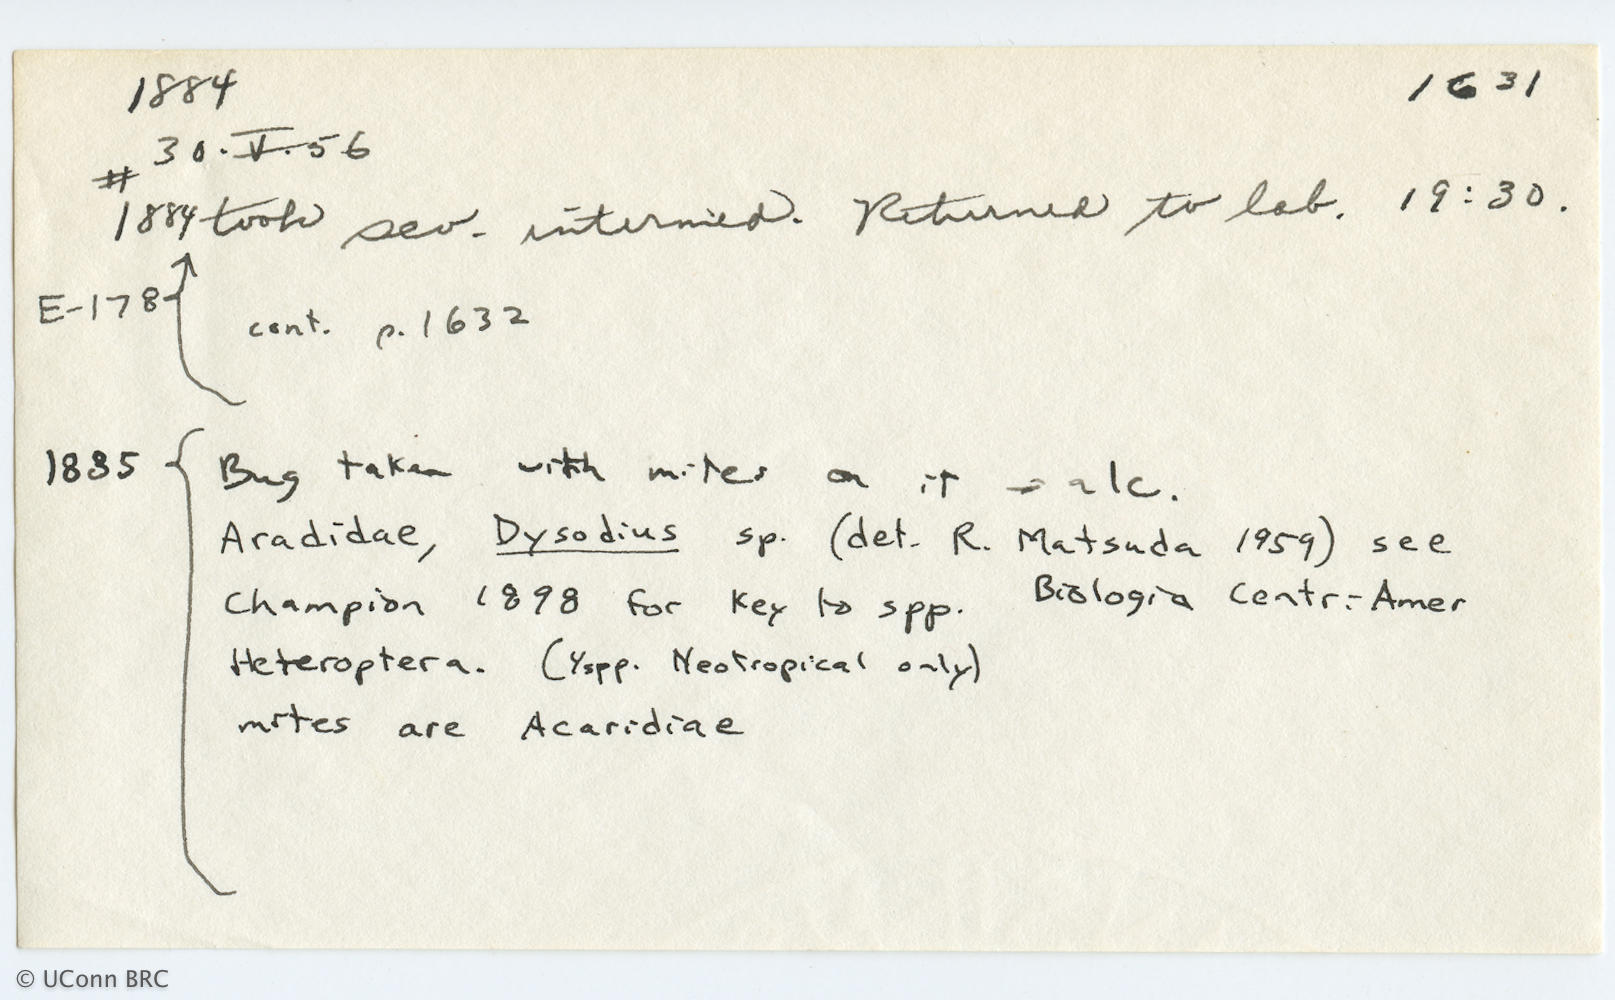 1884
1631
30.V.56
# 1884 took sev. intermied. Returned to lab. 19:30.
E-178
cont. p. 1632
1885 Bug taken with mites on it → alc.
Aradidae, Dysodius sp. (det. R. Matsuda 1959) see
Champion 1898 for key to spp. Biologia Centr.-Amer
Heteroptera. (4spp. Neotropical only)
mites are Acaridiae
© UConn BRC